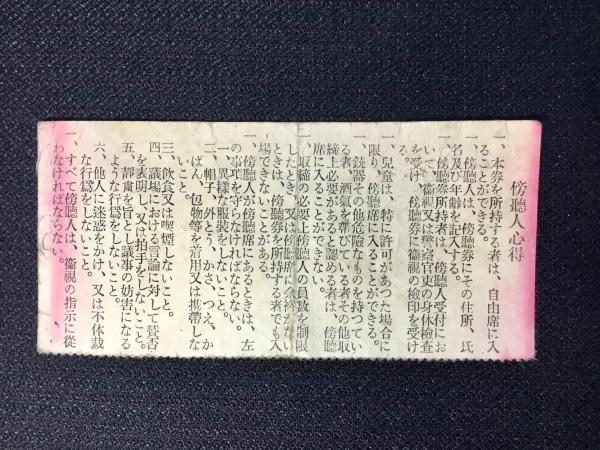 傍聽人心得
一、本券を所持する者は、自由席に入
ることができる。
一、傍聽人は、傍聽券にその住所、氏
名及び年齡を記入する。
一、傍聽券所持者は、傍聽人受付にお
いて、衞視又は警察官吏の身体檢査
を受け、傍聽券に衞視の檢印を受け
る。
一、兒童は、特に許可があつた場合に
限り、傍聽席に入ることができる。
一、銃器その他危險なものを持つてい
る者、酒氣を帶びている者その他取
締上必要があると認める者は、傍聽
席に入ることができない。
一、取締の必要上傍聽人の員数を制限
したとき、又は傍聽席に余裕がない
ときは、傍聽券を所持する者でも入
場できないことがある。
一、傍聽人が傍聽席にあるときは、左
の事項を守らなければならない。
一、異樣な服裝をしないこと。
二、帽子、外とう、かさ、つえ、か
ばん、包物等を着用又は携帶しな
いこと。
三、飮食又は喫煙しないこと。
四、議場における言論に対して賛否
を表明し、又は拍手をしないこと。
五、靜肅を旨とし議事の妨害になる
ような行爲をしないこと。
六、他人に迷惑をかけ、又は不体裁
な行爲をしないこと。
一、すべて傍聽人は、衞視の指示に從
わなければならない。